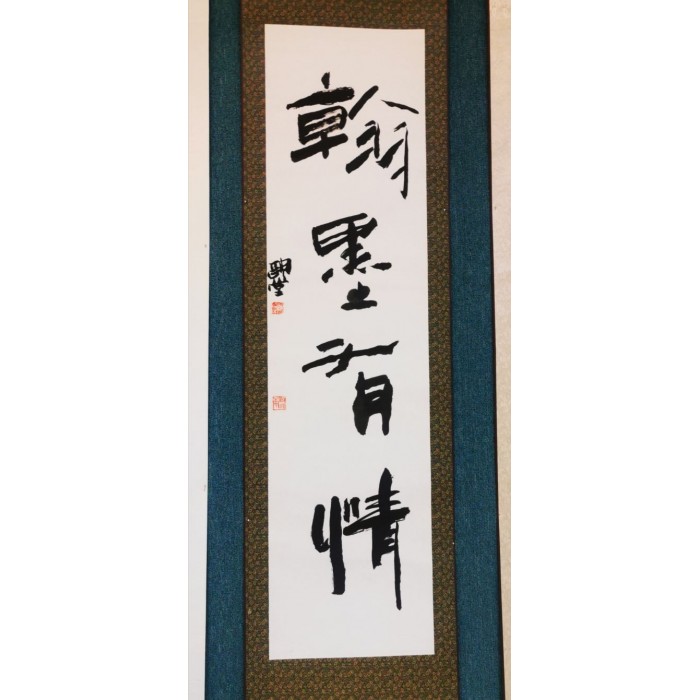 翰墨有情